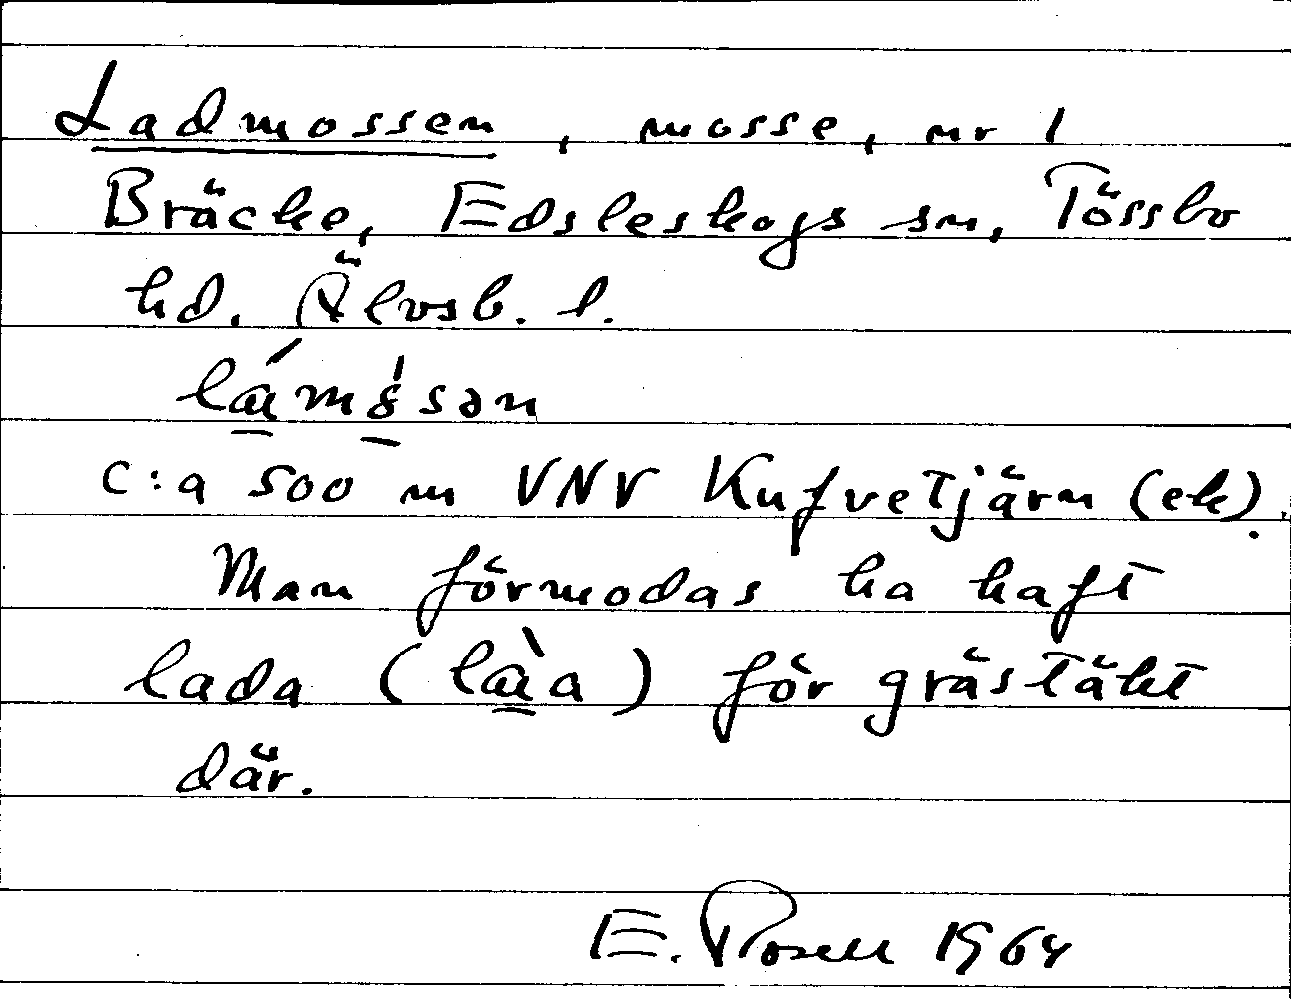 Ladmossen, mosse, nr 1
Bräcke, Edsleskogs sn, Tössbo
hd. Älvsb. l.
c:a 500 m VNV Kufvetjärn (ek).
Man förmodas ha haft
lada (là̱a) för grästäkt
där.
E. Rosell 1964